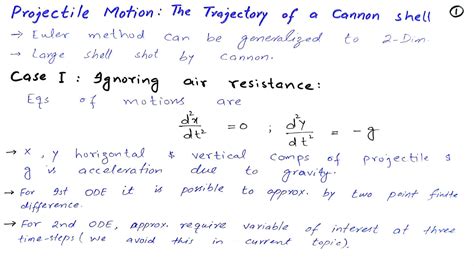 Projectile Motion: The Trajectory of a Cannon shell ①
→ Euler method can be generalized to 2-Dim.
→ Large shell shot by cannon.
Case I : Ignoring air resistance:
Eqs of motions are
d²x/dt² = 0 ; d²y/dt² = -g
→ x, y horizontal & vertical comps of projectile &
g is acceleration due to gravity.
→ For 1st ODE it is possible to approx. by two point finite
difference.
→ For 2nd ODE, approx. require variable of interest at three
time-steps (we avoid this in current topic).